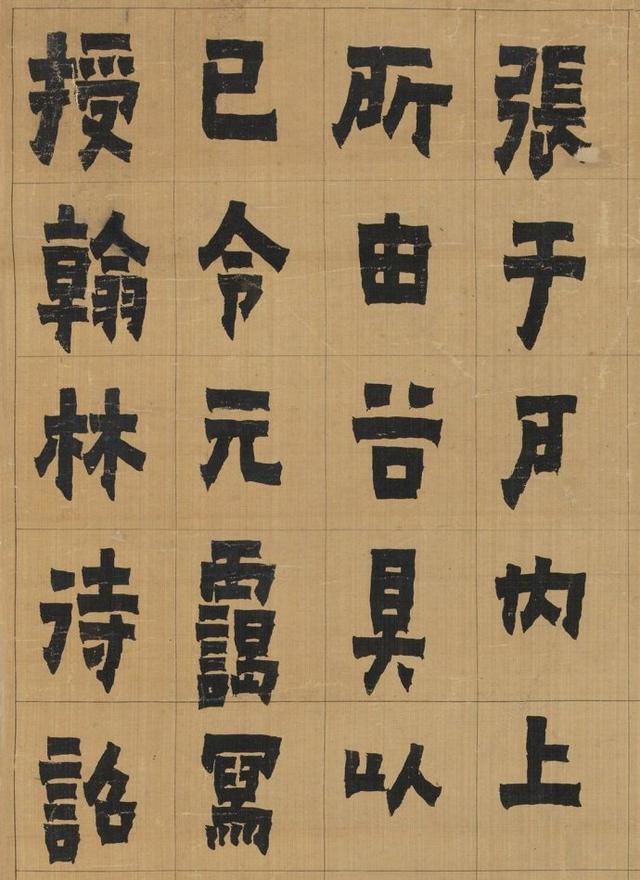 張于戶内上
所由具以
已令元靄寫
授翰林待詔